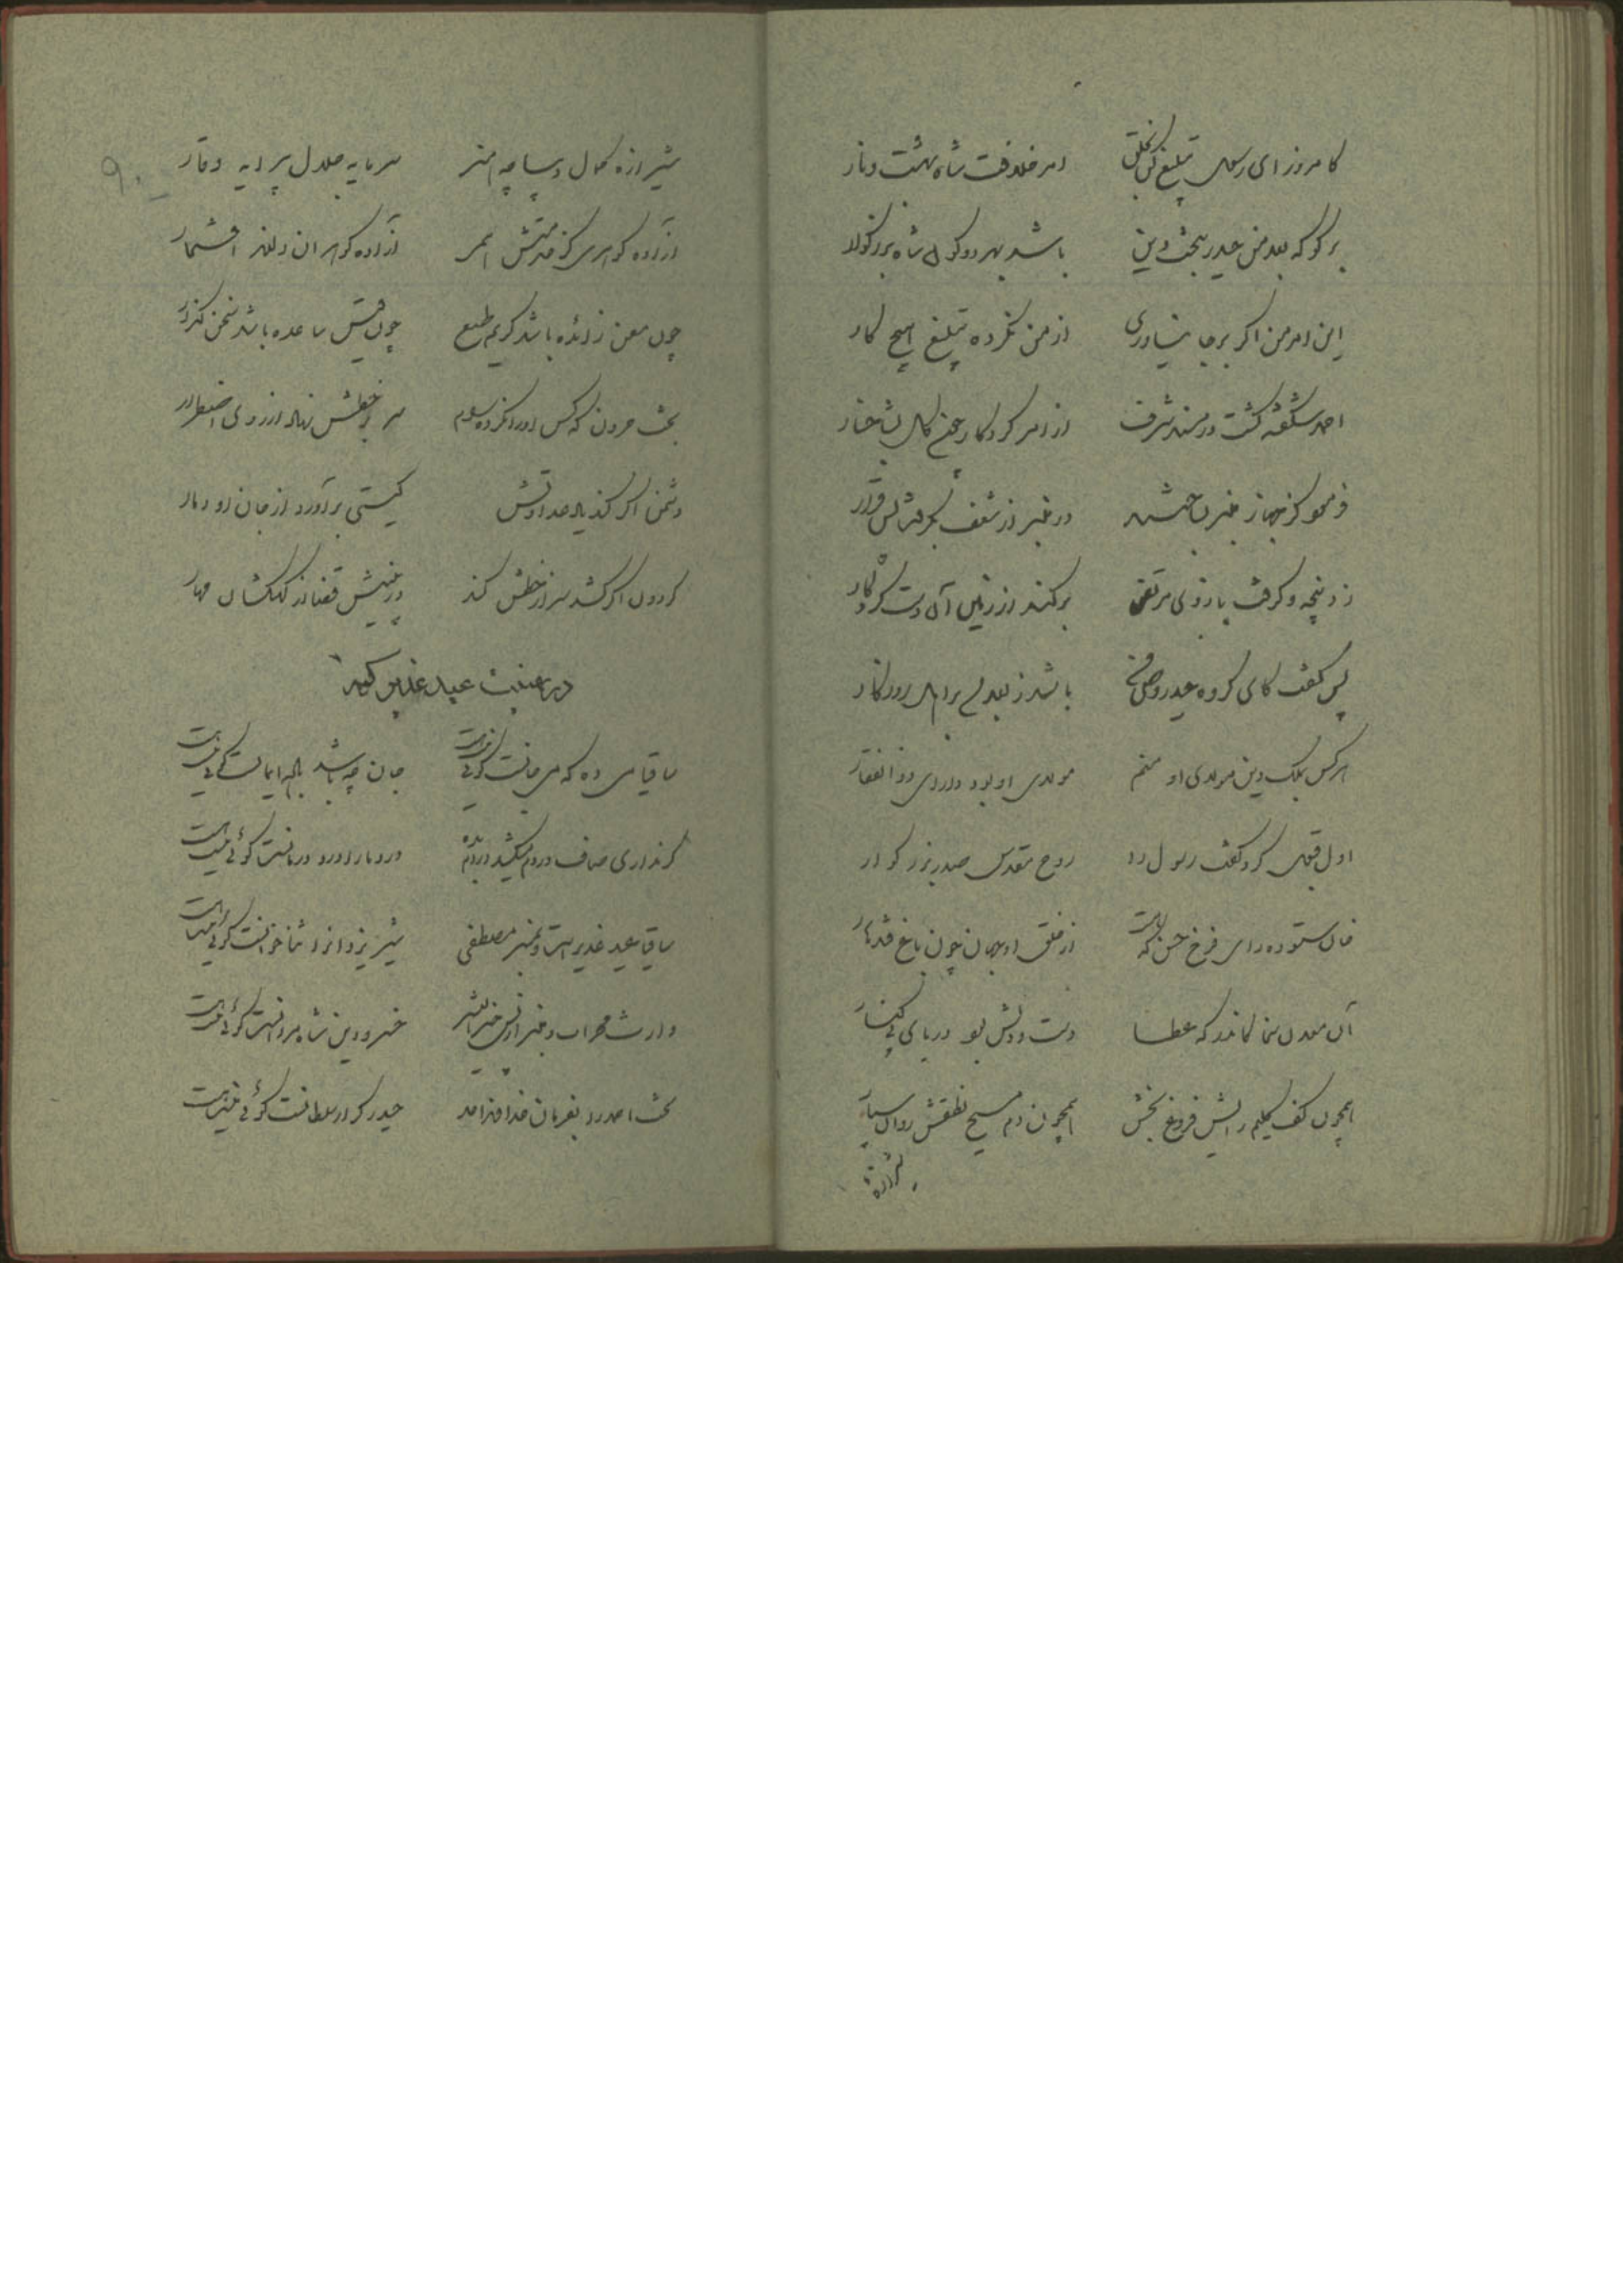 کامروز ای رسول تبلیغ کن بخلق امر خلافت شاه بهشت و نار
برگو که بعد من حیدر بتخت دین باشد بهر دو کون شاه بزرگوار
این امر من اگر بر جا نیاوری از من نکرده تبلیغ هیچ کار
احمد شکفته گشت در مسند شرف از امر کردگار چون گل بشاخسار
فرمود کز جهاز منبر در منبر از شعف بگرفت پس قرار
زد پنجه و گرفت بازوی مرتضی برکند از زمین آن دست کردگار
پس گفت کای گروه حیدر وصی باشد ز بعد من روزگار
هر کس بملک دین مولای او منم مولای او بود دارای ذوالفقار
اول قبول کرد گفت رسول را روح مقدس صدر بزرگوار
خان ستوده رای فرخ حسن که از خلق او جهان چون باغ قندهار
آن معدن سخا کاندر که عطا دست و دلش بود دریای بی کنار
همچون کف کلیم رایش فروغ بخش همچون دم مسیح نطقش روان سپار
شیرازه
۹۰
شیرازه کمال دیباچه هنر سرمایه جلال پیرایه وقار
آزاده گوهری کز خدمتش آزاده گوهران دارند افتخار
چون معن زائده باشد کریم طبع چون قیس ساعده باشد سخن گذار
بخت حرون که کس او را نکرده رام سر بر خطش نهاد از روی اضطرار
دشمن اگر کند یاد عداوتش گیتی برآورد از جان او دمار
گردون اگر کشد سر از خطش کند در بینیش قضا از کهکشان مهار
در تهنیت عید غدیر گوید
ساقیا می ده که می جانست گوئی نیست هست جان چه باشد ایمانست گوئی نیست هست
گر نداری صاف دردم درد ما را درد درمانست گوئی نیست هست
ساقیا عید غدیر است و بمنبر مصطفی شیر یزدان را ثناخوانست گوئی نیست هست
وارث محراب و منبر از پس خیرالبشر خسرو دین شاه مردانست گوئی نیست هست
تخت احمد را بفرمان خداوند احد حیدر کرار سلطانست گوئی نیست هست